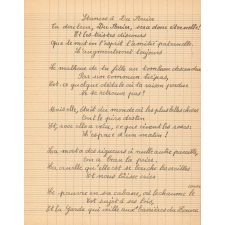 Stances à Du Périer
Ta douleur, Du Périer, sera donc éternelle!
Et les tristes discours
Que te met en l'esprit l'amitié paternelle
L'augmenteront toujours
Le malheur de ta fille au tombeau descendue
Par un commun trépas,
Est-ce quelque dédale où ta raison perdue
Ne se retrouve pas?
Mais elle était du monde où les plus belles choses
Ont le pire destin
Et, rose elle a vécu ce que vivent les roses
L'espace d'un matin!
La mort a des rigueurs à nulle autre pareille,
On a beau la prier,
La cruelle qu'elle est se bouche les oreilles
Et nous laisse crier
Le pauvre en sa cabane, où le chaume le couvre
Est sujet à ses lois,
Et la Garde qui veille aux barrières du Louvre